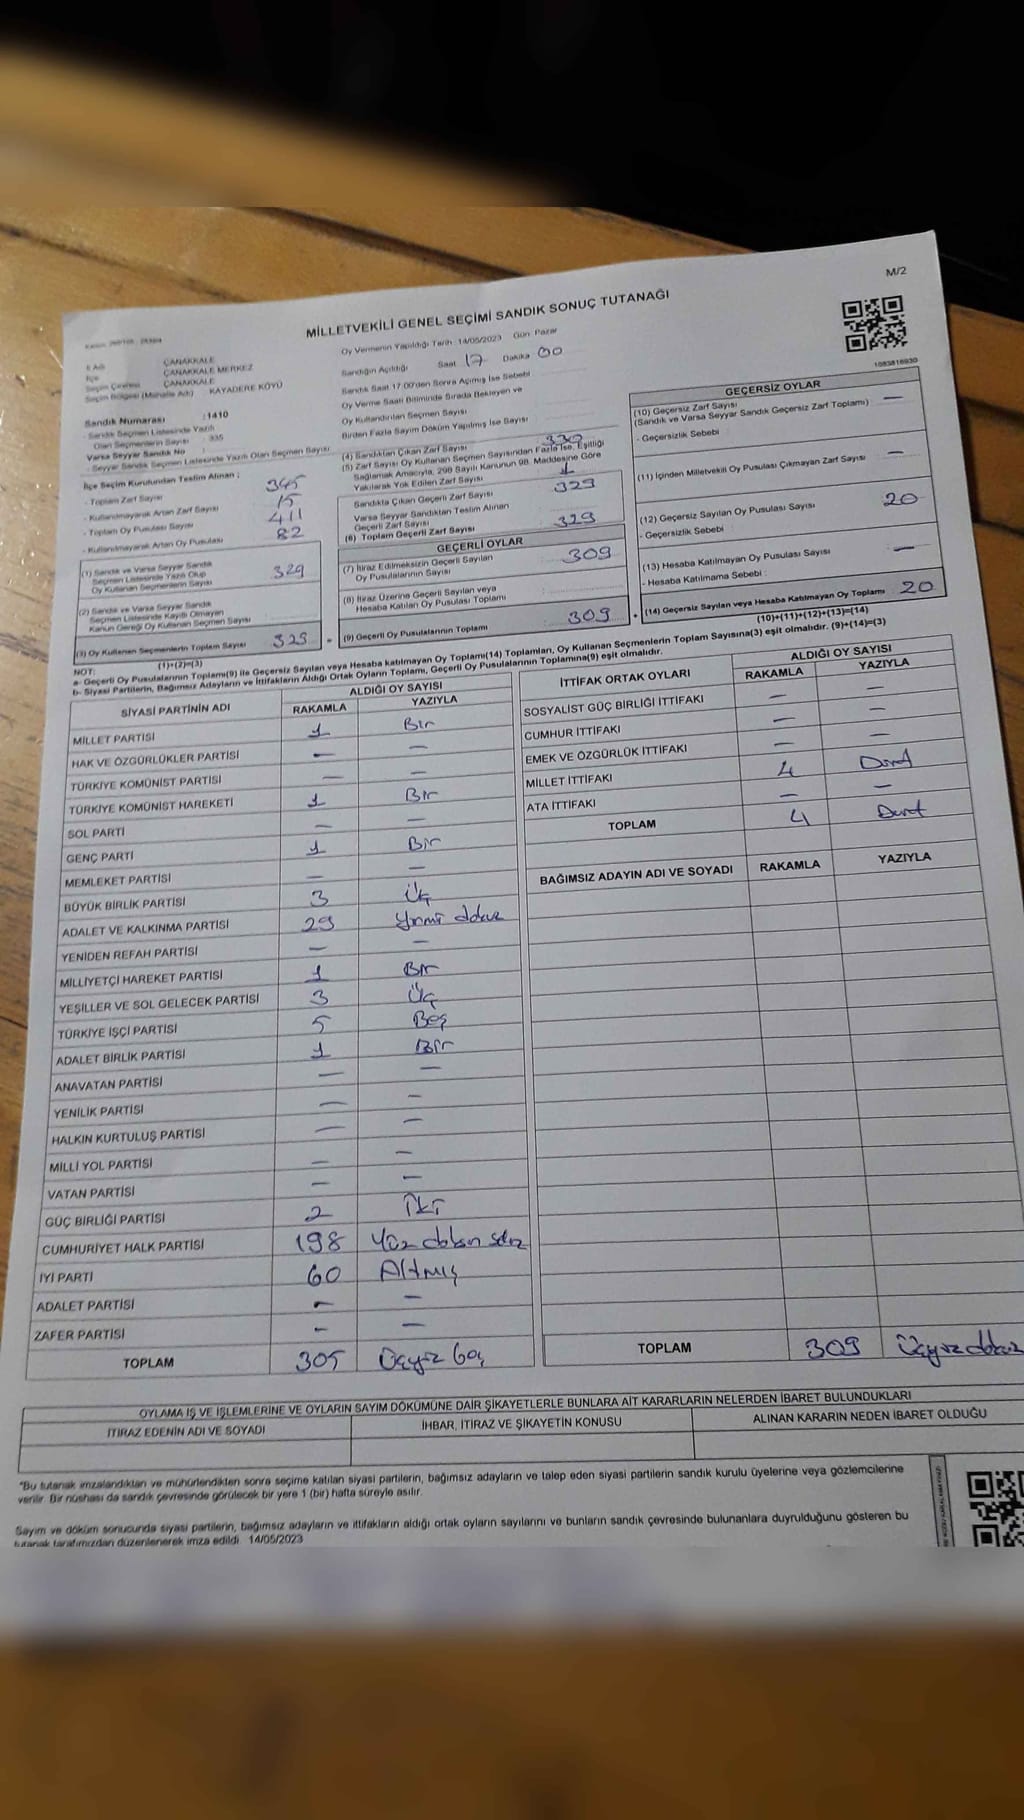 M/2
MİLLETVEKİLİ GENEL SEÇİMİ SANDIK SONUÇ TUTANAĞI
1083816930
İl Adı ÇANAKKALE
İlçe ÇANAKKALE MERKEZ
Seçim Çevresi ÇANAKKALE
Seçim Bölgesi (Mahalle Adı) KAYADERE KÖYÜ
Sandık Numarası :1410
- Sandık Seçmen Listesinde Yazılı
Olan Seçmenlerin Sayısı : 335
Varsa Seyyar Sandık No
- Seyyar Sandık Seçmen Listesinde Yazılı Olan Seçmen Sayısı
İlçe Seçim Kurulundan Teslim Alınan ;
- Toplam Zarf Sayısı 345
- Kullanılmayarak Artan Zarf Sayısı 15
- Toplam Oy Pusulası Sayısı 411
- Kullanılmayarak Artan Oy Pusulası 82
(1) Sandık ve Varsa Seyyar Sandık
Seçmen Listesinde Yazılı Olup
Oy Kullanan Seçmenlerin Sayısı 329
(2) Sandık ve Varsa Seyyar Sandık
Seçmen Listesinde Kayıtlı Olmayan
Kanun Gereği Oy Kullanan Seçmen Sayısı
(3) Oy Kullanan Seçmenlerin Toplam Sayısı 329
(1)+(2)=(3)
Oy Vermenin Yapıldığı Tarih 14/05/2023 Gün Pazar
Sandığın Açıldığı Saat 17 Dakika 00
Sandık Saat 17:00'den Sonra Açılmış İse Sebebi
Oy Verme Saati Bitiminde Sırada Bekleyen ve
Oy Kullandırılan Seçmen Sayısı
Birden Fazla Sayım Döküm Yapılmış İse Sayısı
(4) Sandıktan Çıkan Zarf Sayısı 330
(5) Zarf Sayısı Oy Kullanan Seçmen Sayısından Fazla İse, Eşitliği
Sağlamak Amacıyla, 298 Sayılı Kanunun 98. Maddesine Göre
Yakılarak Yok Edilen Zarf Sayısı 1
Sandıkta Çıkan Geçerli Zarf Sayısı 329
Varsa Seyyar Sandıktan Teslim Alınan
Geçerli Zarf Sayısı
(6) Toplam Geçerli Zarf Sayısı 329
GEÇERLİ OYLAR
(7) İtiraz Edilmeksizin Geçerli Sayılan
Oy Pusulalarının Sayısı 309
(8) İtiraz Üzerine Geçerli Sayılan veya
Hesaba Katılan Oy Pusulası Toplamı
(9) Geçerli Oy Pusulalarının Toplamı 309
GEÇERSİZ OYLAR
(10) Geçersiz Zarf Sayısı —
(Sandık ve Varsa Seyyar Sandık Geçersiz Zarf Toplamı)
- Geçersizlik Sebebi
(11) İçinden Milletvekili Oy Pusulası Çıkmayan Zarf Sayısı —
(12) Geçersiz Sayılan Oy Pusulası Sayısı 20
- Geçersizlik Sebebi
(13) Hesaba Katılmayan Oy Pusulası Sayısı —
- Hesaba Katılmama Sebebi :
(14) Geçersiz Sayılan veya Hesaba Katılmayan Oy Toplamı 20
(10)+(11)+(12)+(13)=(14)
NOT:
a- Geçerli Oy Pusulalarının Toplamı(9) ile Geçersiz Sayılan veya Hesaba katılmayan Oy Toplamı(14) Toplamları, Oy Kullanan Seçmenlerin Toplam Sayısına(3) eşit olmalıdır. (9)+(14)=(3)
b- Siyasi Partilerin, Bağımsız Adayların ve İttifakların Aldığı Oy Sayılarının Toplamı, Geçerli Oy Pusulalarının Toplamına(9) eşit olmalıdır.
SİYASİ PARTİNİN ADI ALDIĞI OY SAYISI
RAKAMLA YAZIYLA
MİLLET PARTİSİ 1 Bir
HAK VE ÖZGÜRLÜKLER PARTİSİ — —
TÜRKİYE KOMÜNİST PARTİSİ — —
TÜRKİYE KOMÜNİST HAREKETİ 1 Bir
SOL PARTİ — —
GENÇ PARTİ 1 Bir
MEMLEKET PARTİSİ — —
BÜYÜK BİRLİK PARTİSİ 3 Üç
ADALET VE KALKINMA PARTİSİ 29 Yirmi dokuz
YENİDEN REFAH PARTİSİ — —
MİLLİYETÇİ HAREKET PARTİSİ 1 Bir
YEŞİLLER VE SOL GELECEK PARTİSİ 3 Üç
TÜRKİYE İŞÇİ PARTİSİ 5 Beş
ADALET BİRLİK PARTİSİ 1 Bir
ANAVATAN PARTİSİ — —
YENİLİK PARTİSİ — —
HALKIN KURTULUŞ PARTİSİ — —
MİLLİ YOL PARTİSİ — —
VATAN PARTİSİ — —
GÜÇ BİRLİĞİ PARTİSİ 2 İki
CUMHURİYET HALK PARTİSİ 198 Yüz doksan sekiz
İYİ PARTİ 60 Altmış
ADALET PARTİSİ — —
ZAFER PARTİSİ — —
TOPLAM 305 Üçyüz beş
İTTİFAK ORTAK OYLARI ALDIĞI OY SAYISI
RAKAMLA YAZIYLA
SOSYALİST GÜÇ BİRLİĞİ İTTİFAKI — —
CUMHUR İTTİFAKI — —
EMEK VE ÖZGÜRLÜK İTTİFAKI — —
MİLLET İTTİFAKI 4 Dört
ATA İTTİFAKI — —
TOPLAM 4 Dört
BAĞIMSIZ ADAYIN ADI VE SOYADI RAKAMLA YAZIYLA
TOPLAM 309 Üçyüz dokuz
OYLAMA İŞ VE İŞLEMLERİNE VE OYLARIN SAYIM DÖKÜMÜNE DAİR ŞİKAYETLERLE BUNLARA AİT KARARLARIN NELERDEN İBARET BULUNDUKLARI
İTİRAZ EDENİN ADI VE SOYADI İHBAR, İTİRAZ VE ŞİKAYETİN KONUSU ALINAN KARARIN NEDEN İBARET OLDUĞU
"Bu tutanak imzalandıktan ve mühürlendikten sonra seçime katılan siyasi partilerin, bağımsız adayların ve talep eden siyasi partilerin sandık kurulu üyelerine veya gözlemcilerine
verilir. Bir nüshası da sandık çevresinde görülecek bir yere 1 (bir) hafta süreyle asılır.
Sayım ve döküm sonucunda siyasi partilerin, bağımsız adayların ve ittifakların aldığı ortak oyların sayılarını ve bunların sandık çevresinde bulunanlara duyrulduğunu gösteren bu
tutanak tarafımızdan düzenlenerek imza edildi. 14/05/2023